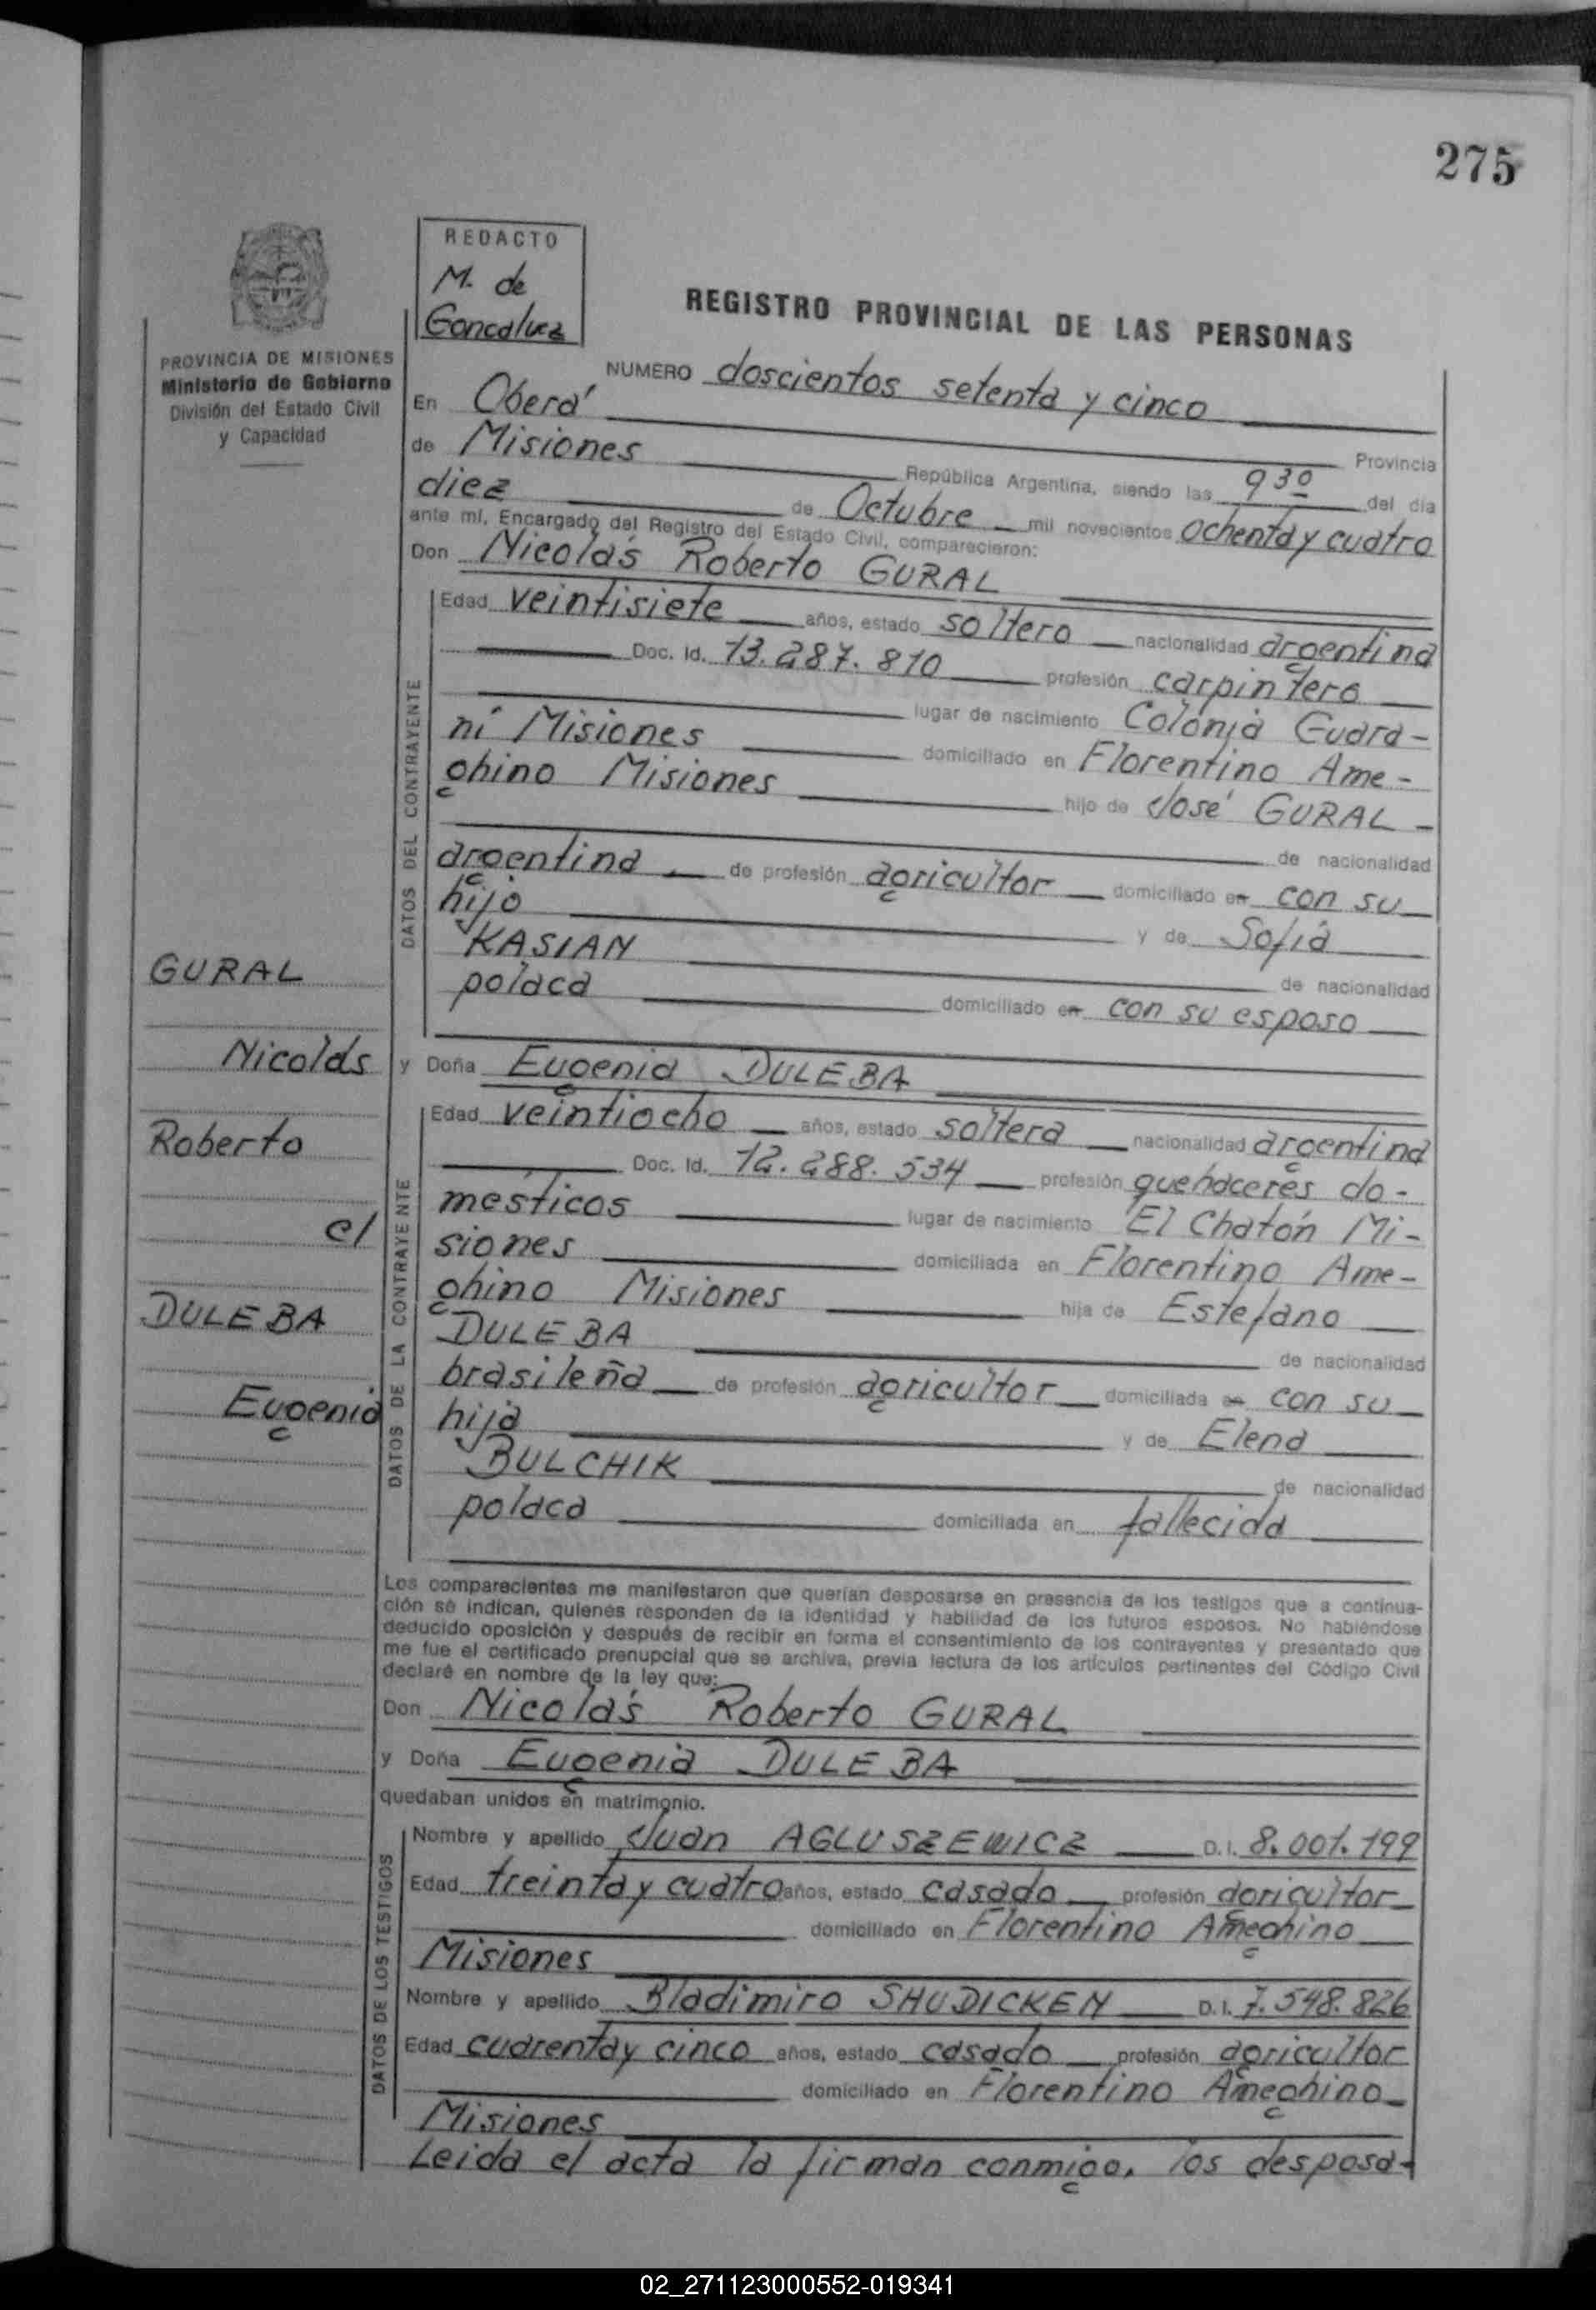 275
REDACTO
M. de
Goncalvez
REGISTRO PROVINCIAL DE LAS PERSONAS
PROVINCIA DE MISIONES
Ministerio de Gobierno
División del Estado Civil
y Capacidad
NUMERO doscientos setenta y cinco
En Oberá Provincia
de Misiones República Argentina, siendo las 9 30 del día
diez de Octubre mil novecientos ochenta y cuatro
ante mí, Encargado del Registro del Estado Civil, comparecieron:
Don Nicolás Roberto GURAL
DATOS DEL CONTRAYENTE
Edad veintisiete años, estado soltero nacionalidad argentina
Doc. Id. 13.287.810 profesión carpintero
lugar de nacimiento Colonia Guara-
ní Misiones domiciliado en Florentino Ame-
ghino Misiones hijo de José GURAL
de nacionalidad
argentina de profesión agricultor domiciliado en con su
hijo y de Sofia
KASIAN de nacionalidad
polaca domiciliado en con su esposo
y Doña Eugenia DULEBA
DATOS DE LA CONTRAYENTE
Edad veintiocho años, estado soltera nacionalidad argentina
Doc. Id. 12.288.534 profesión quehaceres do-
mésticos lugar de nacimiento El Chatón Mi-
siones domiciliada en Florentino Ame-
ghino Misiones hija de Estefano
DULEBA de nacionalidad
brasileña de profesión agricultor domiciliada en con su
hija y de Elena
BULCHIK de nacionalidad
polaca domiciliada en fallecida
GURAL
Nicolás
Roberto
c/
DULEBA
Eugenia
Los comparecientes me manifestaron que querían desposarse en presencia de los testigos que a continua-
ción se indican, quienes responden de la identidad y habilidad de los futuros esposos. No habiéndose
deducido oposición y después de recibir en forma el consentimiento de los contrayentes y presentado que
me fue el certificado prenupcial que se archiva, previa lectura de los artículos pertinentes del Código Civil
declaré en nombre de la ley que:
Don Nicolás Roberto GURAL
y Doña Eugenia DULEBA
quedaban unidos en matrimonio.
DATOS DE LOS TESTIGOS
Nombre y apellido Juan AGLUSZEWICZ D.I. 8.001.199
Edad treinta y cuatro años, estado casado profesión agricultor
domiciliado en Florentino Ameghino
Misiones
Nombre y apellido Bladimiro SHUDICKEN D.I. 7.548.826
Edad cuarenta y cinco años, estado casado profesión agricultor
domiciliado en Florentino Ameghino
Misiones
Leida el acta la firman conmigo, los desposa-
02_271123000552-019341